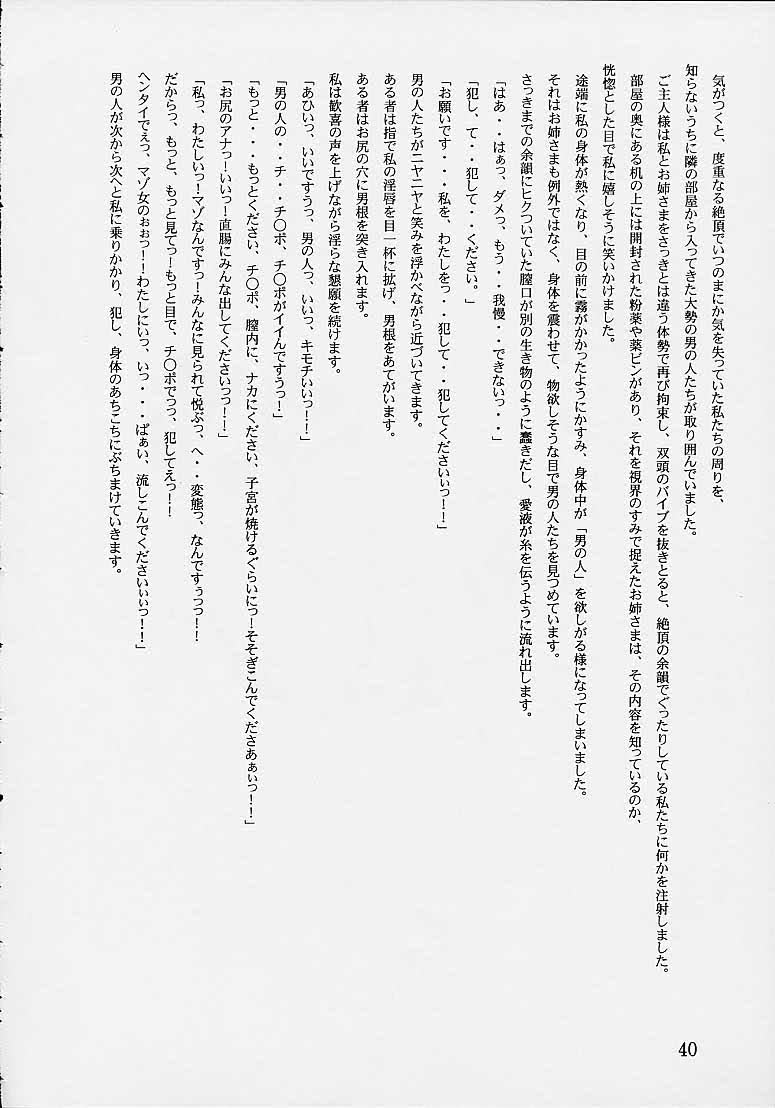 気がつくと、度重なる絶頂でいつのまにか気を失っていた私たちの周りを、
知らないうちに隣の部屋から入ってきた大勢の男の人たちが取り囲んでいました。
ご主人様は私とお姉さまをさっきとは違う体勢で再び拘束し、双頭のバイブを抜きとると、絶頂の余韻でぐったりしている私たちに何かを注射しました。
部屋の奥にある机の上には開封された粉薬や薬ビンがあり、それを視界のすみで捉えたお姉さまは、その内容を知っているのか、
恍惚とした目で私に嬉しそうに笑いかけました。
途端に私の身体が熱くなり、目の前に霧がかかったようにかすみ、身体中が「男の人」を欲しがる様になってしまいました。
それはお姉さまも例外ではなく、身体を震わせて、物欲しそうな目で男の人たちを見つめています。
さっきまでの余韻にヒクついていた膣口が別の生き物のように蠢きだし、愛液が糸を伝うように流れ出します。
「はあ・・はぁっ、ダメっ、もう・・我慢・・できないっ・・」
「犯し、て・・犯して・・ください。」
「お願いです・・・私を、わたしをっ・・犯して・・犯してくださいぃっ！！」
男の人たちがニヤニヤと笑みを浮かべながら近づいてきます。
ある者は指で私の淫唇を目一杯に拡げ、男根をあてがいます。
ある者はお尻の穴に男根を突き入れます。
私は歓喜の声を上げながら淫らな懇願を続けます。
「あひいっ、いいですうっ、男の人っ、いいっ、キモチいいっ！！」
「男の人の・・チ・・チ〇ポ、チ〇ポがイイんですうっ！」
「もっと・・・もっとください、チ〇ポ、膣内に、ナカにください、子宮が焼けるぐらいにっ！そそぎこんでくださあぁぃっ！！」
「お尻のアナっーいいっ！直腸にみんな出してくださいっっ！！」
「私っ、わたしいっ！マゾなんですっ！みんなに見られて悦ぶっ、へ・・変態っ、なんですぅっっ！！
だからっ、もっと、もっと見てっ！もっと目で、チ〇ポでっっ、犯してえっ！！
ヘンタイでぇっ、マゾ女のぉぉっ！！わたしにいっ、いっ・・・ぱぁい、流しこんでくださいぃぃっ！！」
男の人が次から次へと私に乗りかかり、犯し、身体のあちこちにぶちまけていきます。
40